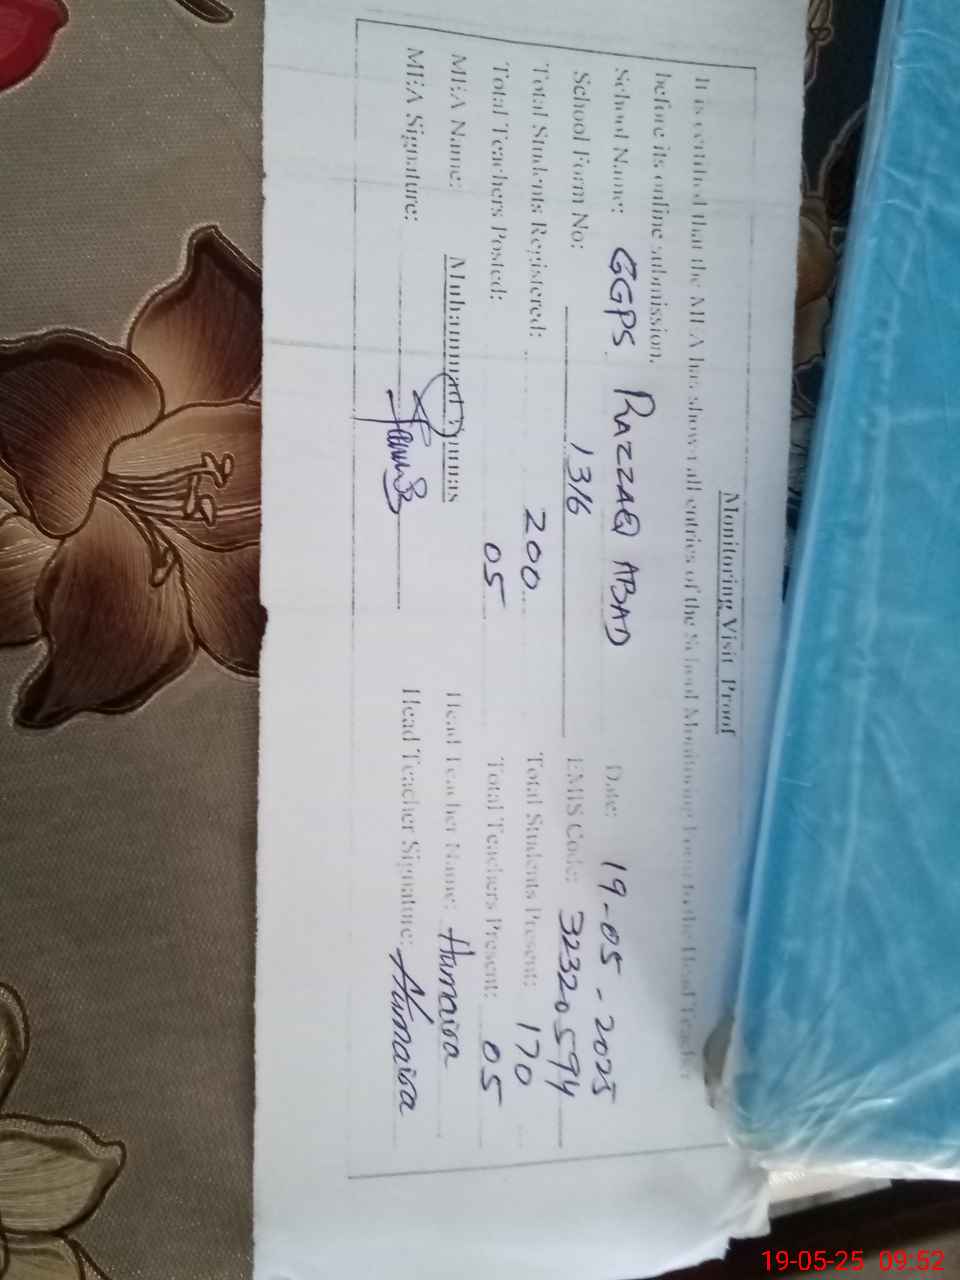 Monitoring Visit Proof
It is certified that the MEA has shown all entries of the School Monitoring Form to the Head Teacher
before its online submission.
School Name: GGPS RAZZAQ ABAD Date: 19-05-2025
School Form No: 1316 EMIS Code: 32320594
Total Students Registered: 200 Total Students Present: 170
Total Teachers Posted: 05 Total Teachers Present: 05
MEA Name: Muhammad Younas Head Teacher Name: Humaira
MEA Signature: Head Teacher Signature: Humaira
19-05-25 09:52